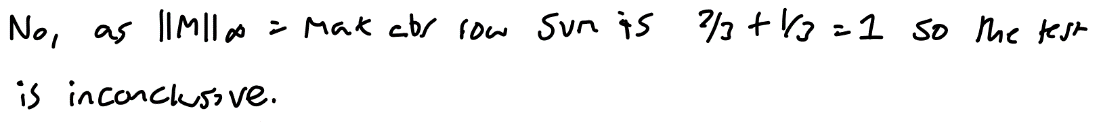 No, as ||M||∞ = Max abs row sum is 2/3 + 1/3 = 1 so the test
is inconclusive.